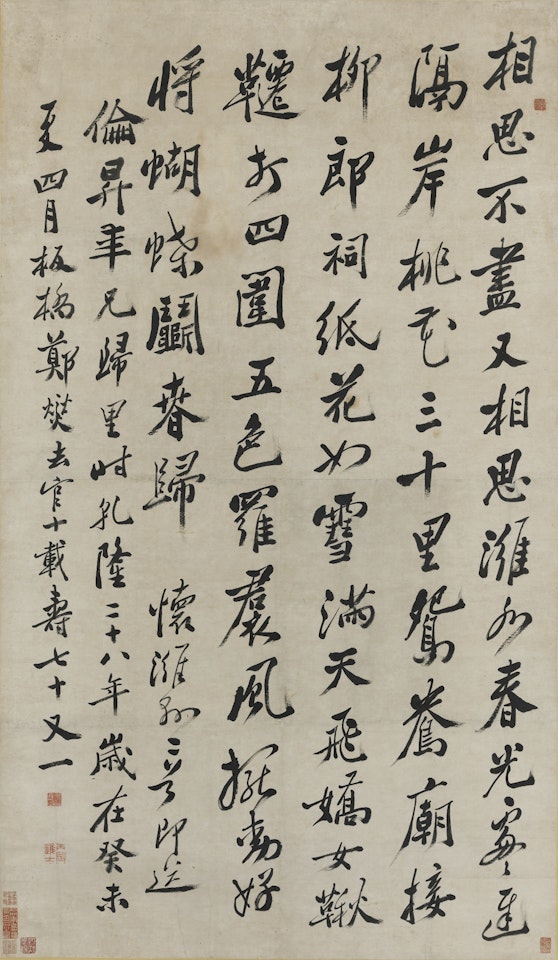 相思不盡又相思濰水春光處〻遲
隔岸桃花三十里鴛鴦廟接
柳郎祠紙花如雪滿天飛嬌女鞦
韆打四圍五色羅裠風擺動好
将蝴蝶鬬春歸 懷濰縣二首即送
倫昇年兄歸里時乾隆二十八年歲在癸未
夏四月板橋鄭燮去官十載壽七十又一